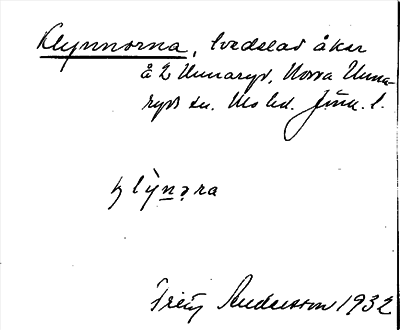 Klynnorna, bredelad åker
å L Unnaryd, Norra Unna-
ryds sn. Mo hd. Jönk. l.
klỳnəra
Fritz Andersson 1932